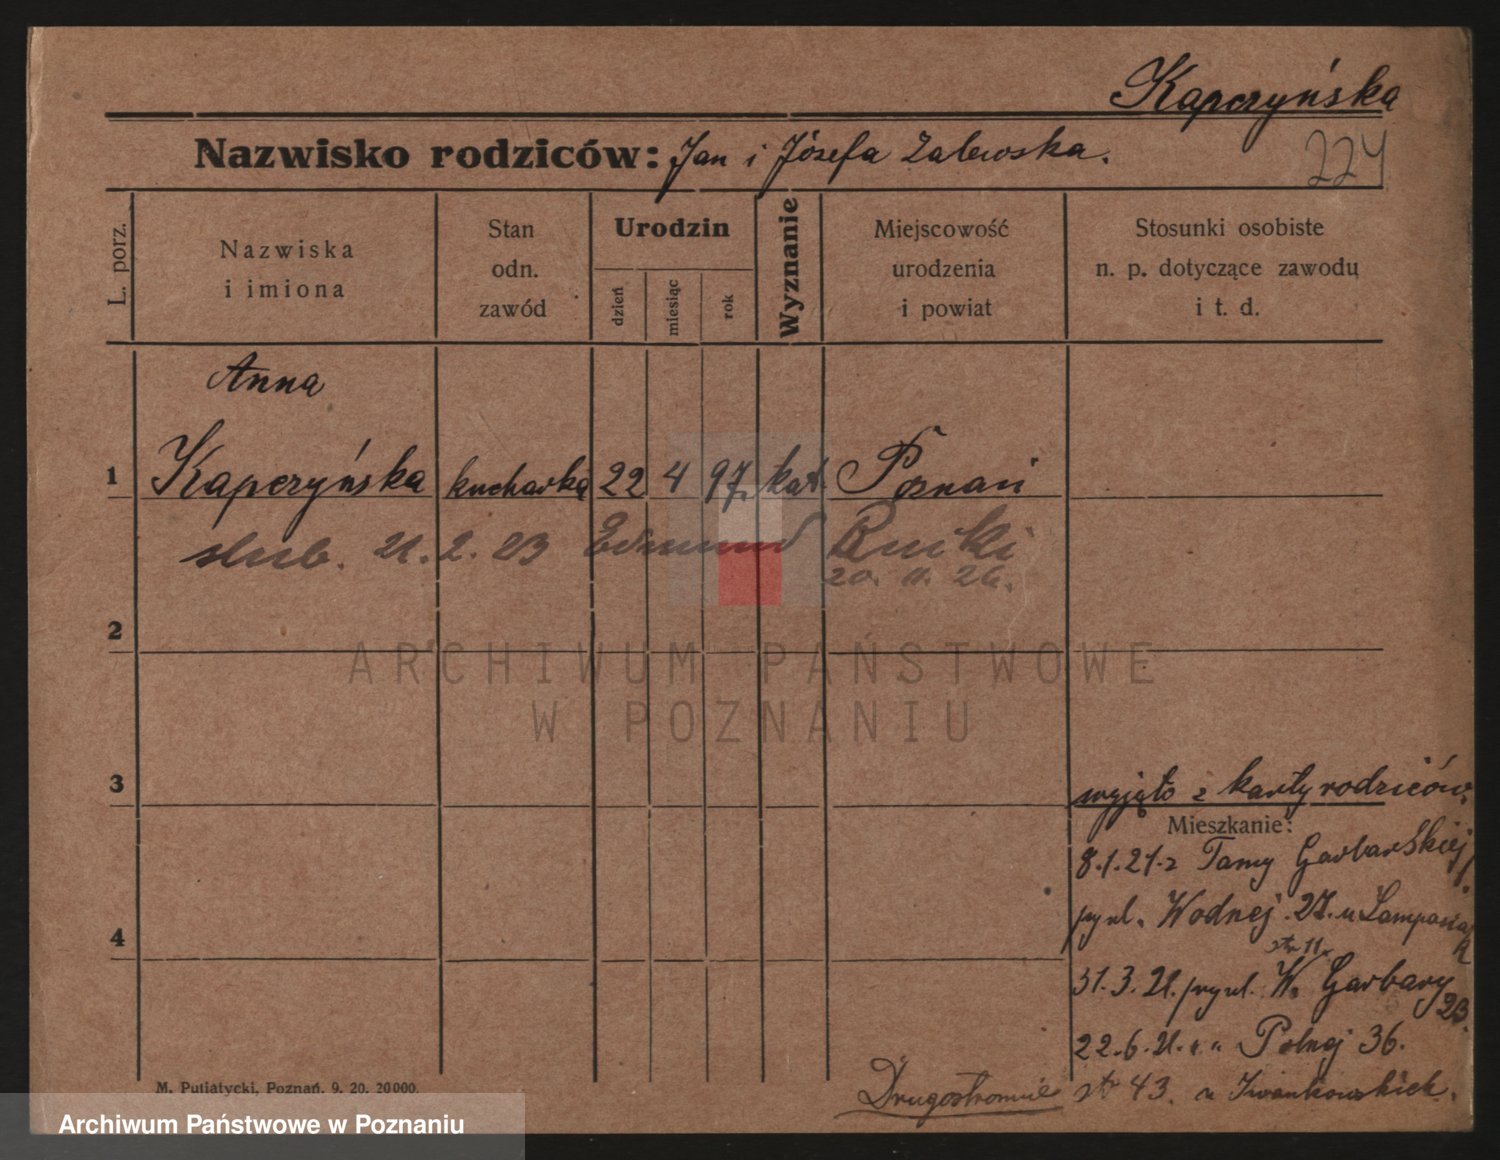 Kapczyńska
Nazwisko rodziców: Jan i Józefa Zalewska.
224
L. porz.
Nazwiska
i imiona
Stan
odn.
zawód
Urodzin
dzień
miesiąc
rok
Wyznanie
Miejscowość
urodzenia
i powiat
Stosunki osobiste
n. p. dotyczące zawodu
i t. d.
Anna
1 Kapczyńska kucharka 22 4 97. kat. Poznań
slub. 21. 2. 23 Edmund
20. 11. 26.
2
ARCHIWUM PAŃSTWOWE
W POZNANIU
3
wyjęto z karty rodziców.
Mieszkanie:
8.1.21. z Tamy Garbarskiej
przy ul. Wodnej 27. u
str 11.
31.3.21. przy ul. W. Garbary
23.
4
22.6.21. " " Polnej 36.
Drugostronnie
str 43. u Iwankowskich.
M. Putiatycki, Poznań. 9. 20. 20000.
Archiwum Państwowe w Poznaniu